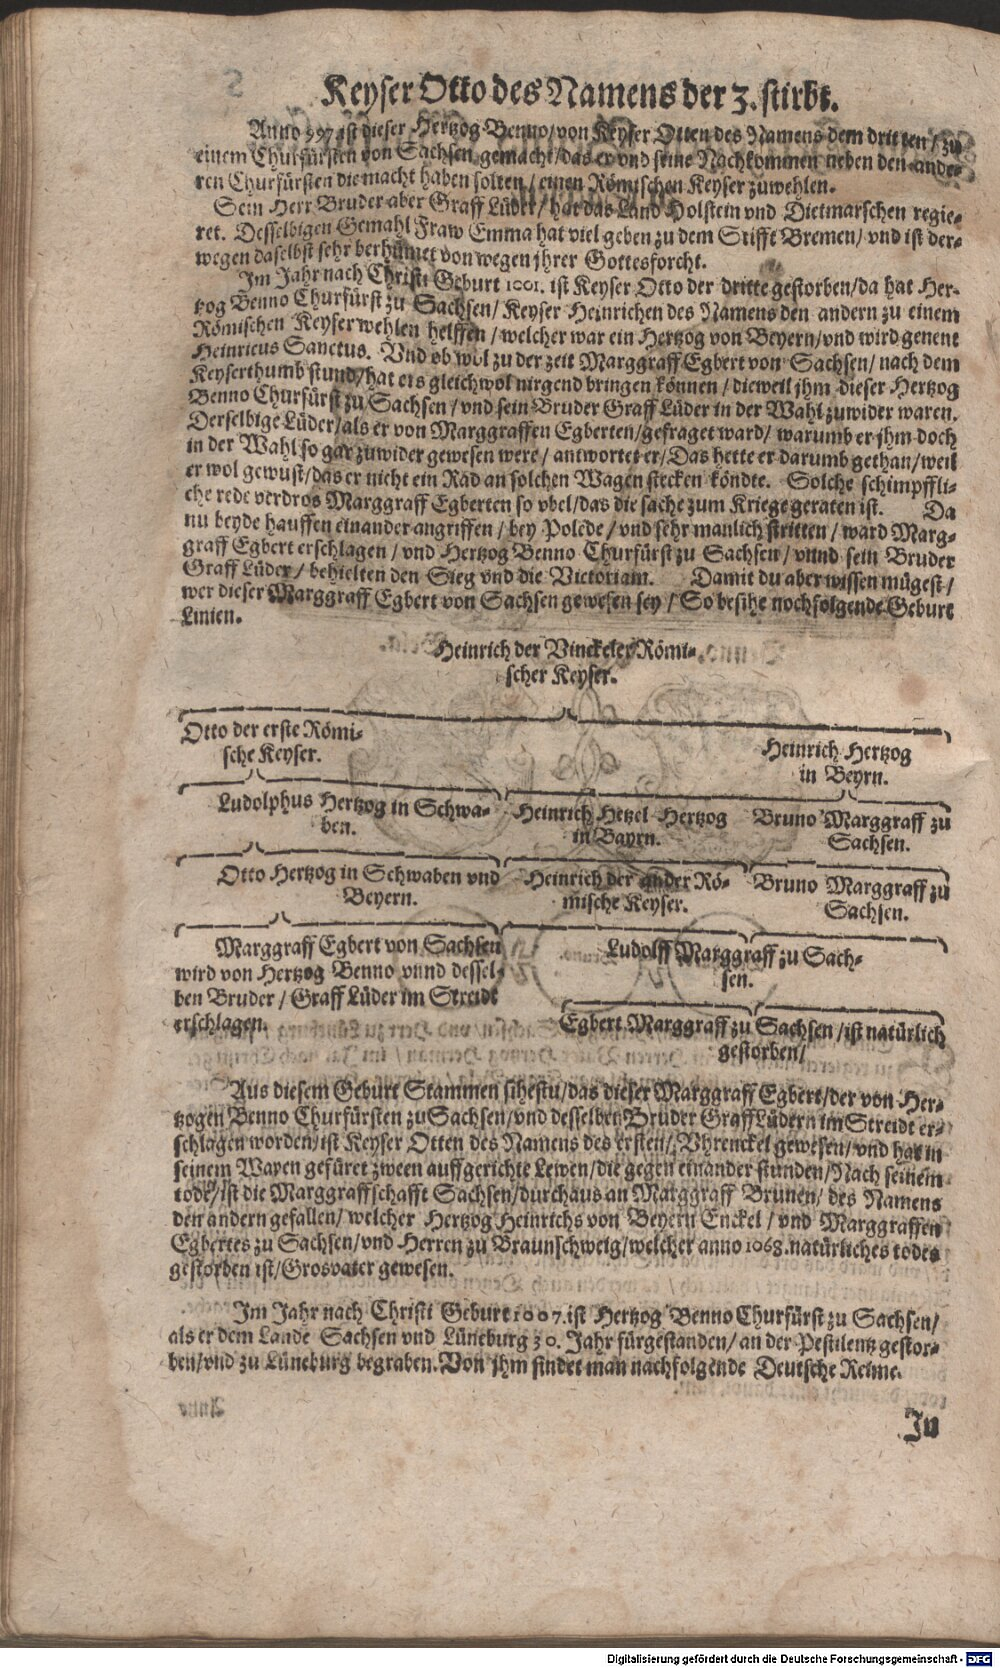 Keyser Otto des Namens der 3. stirbt.
Anno 997. ist dieser Hertzog Benno/ von Keyser Otten des Namens dem dritten/ zu
einem Churfürsten von Sachsen gemacht/ das er vnd seine Nachkommen neben den ande-
ren Churfürsten die macht haben solten/ einen Römischen Keyser zuwehlen.
Sein Herr Bruder aber Graff Lüder/ hat das Land Holstein vnd Dietmarschen regie-
ret. Desselbigen Gemahl Fraw Emma hat viel geben zu dem Stifft Bremen/ vnd ist der-
wegen daselbst sehr berhümet von wegen jhrer Gottesforcht.
Im Jahr nach Christi Geburt 1001. ist Keyser Otto der dritte gestorben/ da hat Her-
tzog Benno Churfürst zu Sachsen/ Keyser Heinrichen des Namens den andern zu einem
Römischen Keyser wehlen helffen/ welcher war ein Hertzog von Beyern/ vnd wird genent
Heinricus Sanctus. Vnd ob wol zu der zeit Marggraff Egbert von Sachsen/ nach dem
Keyserthumb stund/ hat ers gleichwol nirgend bringen können/ dieweil jhm dieser Hertzog
Benno Churfürst zu Sachsen/ vnd sein Bruder Graff Lüder in der Wahl zuwider waren.
Derselbige Lüder/ als er von Marggraffen Egberten/ gefraget ward/ warumb er jhm doch
in der Wahl so gar zuwider gewesen were/ antwortet er/ Das hette er darumb gethan/ weil
er wol gewust/ das er nicht ein Rad an solchen Wagen stecken köndte. Solche schimpffli-
che rede verdros Marggraff Egberten so vbel/ das die sache zum Kriege geraten ist. Da
nu beyde hauffen einander angriffen/ bey Polede/ vnd sehr manlich stritten/ ward Marg-
graff Egbert erschlagen/ vnd Hertzog Benno Churfürst zu Sachsen/ vnnd sein Bruder
Graff Lüder/ behielten den Sieg vnd die Victoriam. Damit du aber wissen mügest/
wer dieser Marggraff Egbert von Sachsen gewesen sey/ So besihe nochfolgende Geburt
Linien.
Heinrich der Vinckeler Römi-
scher Keyser.
Otto der erste Römi-
sche Keyser.
Heinrich Hertzog
in Beyrn.
Ludolphus Hertzog in Schwa-
ben.
Heinrich Hetzel Hertzog
in Bayrn.
Bruno Marggraff zu
Sachsen.
Otto Hertzog in Schwaben vnd
Beyern.
Heinrich der ander Rö-
mische Keyser.
Bruno Marggraff zu
Sachsen.
Marggraff Egbert von Sachsen
wird von Hertzog Benno vnnd dessel-
ben Bruder/ Graff Lüder im Streidt
erschlagen.
Ludolff Marggraff zu Sach-
sen.
Egbert Marggraff zu Sachsen/ ist natürlich
gestorben/
Aus diesem Geburt Stammen sihestu/ das dieser Marggraff Egbert/ der von Her-
tzogen Benno Churfürsten zu Sachsen/ vnd desselben Bruder Graff Lüdern im Streidt er-
schlagen worden/ ist Keyser Otten des Namens des ersten/ Vhrenckel gewesen/ vnd hat in
seinem Wapen gefüret zween auffgerichte Lewen/ die gegen einander stunden/ Nach seinem
tode/ ist die Marggraffschafft Sachsen/ durchaus an Marggraff Brunen/ des Namens
den andern gefallen/ welcher Hertzog Heinrichs von Beyern Enckel/ vnd Marggraffen
Egbertes zu Sachsen/ vnd Herren zu Braunschweig/ welcher anno 1068. natürliches todes
gestorben ist/ Grosvater gewesen.
Im Jahr nach Christi Geburt 1007. ist Hertzog Benno Churfürst zu Sachsen/
als er dem Lande Sachsen vnd Lüneburg 30. Jahr fürgestanden/ an der Pestilentz gestor-
ben/ vnd zu Lüneburg begraben. Von jhm findet man nachfolgende Deutsche Reime.
In
Digitalisierung gefördert durch die Deutsche Forschungsgemeinschaft - DFG